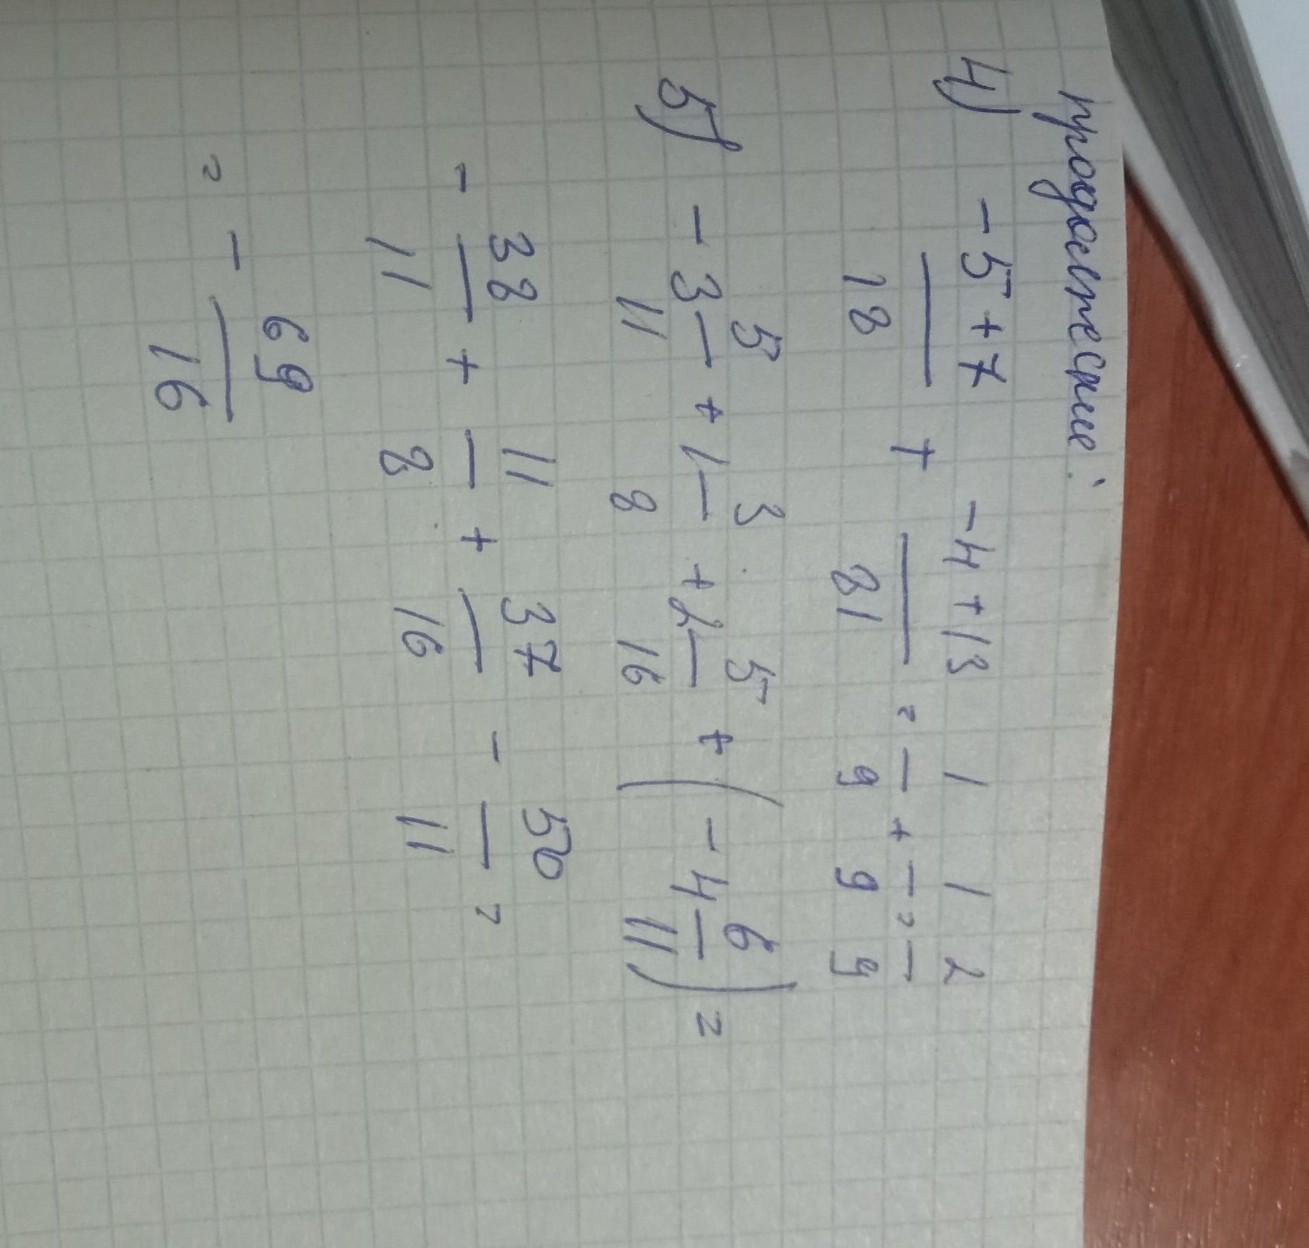 продолжение:
4) (-5+7)/18 + (-4+13)/81 = 1/9 + 1/9 = 2/9
5) - 3 5/11 + 1 3/8 + 2 5/16 + (- 4 6/11) =
- 38/11 + 11/8 + 37/16 - 50/11 =
= - 69/16